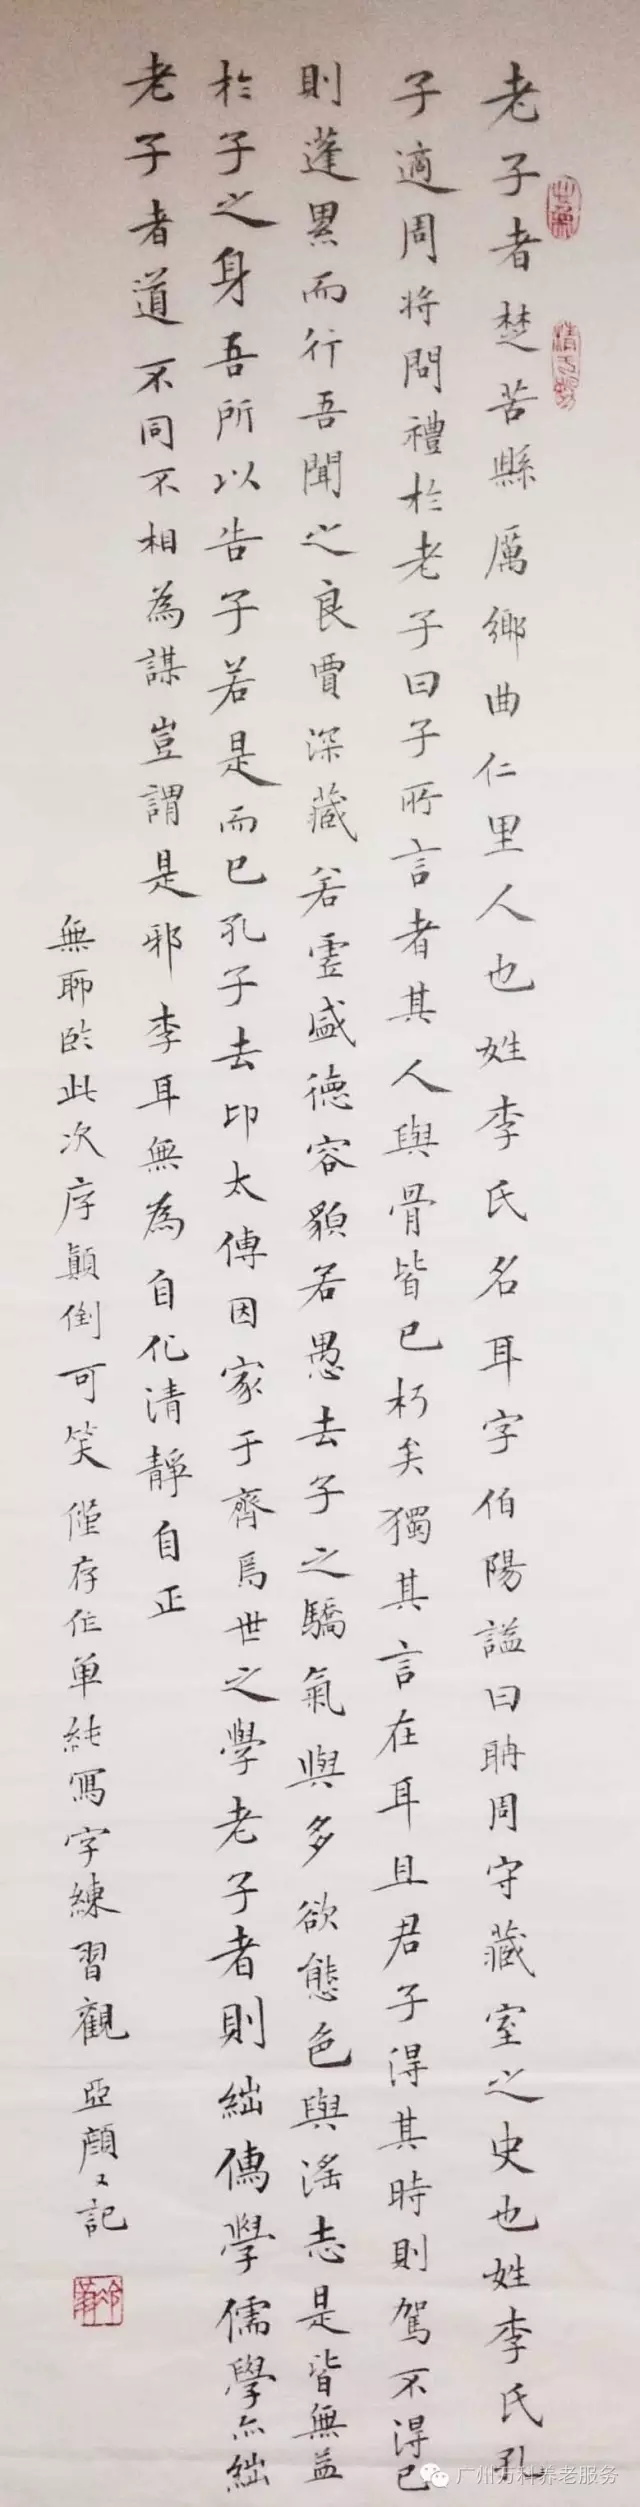 老子者楚苦縣厲鄉曲仁里人也姓李氏名耳字伯陽謚曰聃周守藏室之史也姓李氏孔
子適周將問禮於老子曰子所言者其人與骨皆已朽矣獨其言在耳且君子得其時則駕不得已
則蓬累而行吾聞之良賈深藏若虛盛德容貌若愚去子之驕氣與多欲態色與淫志是皆無益
於子之身吾所以告子若是而已孔子去印太傅因家于齊焉世之學老子者則絀儒學儒學亦絀
老子者道不同不相為謀豈謂是邪李耳無為自化清靜自正
無聊臨此次序顛倒可笑僅存作單純寫字練習觀 亞顏又記
广州万科养老服务